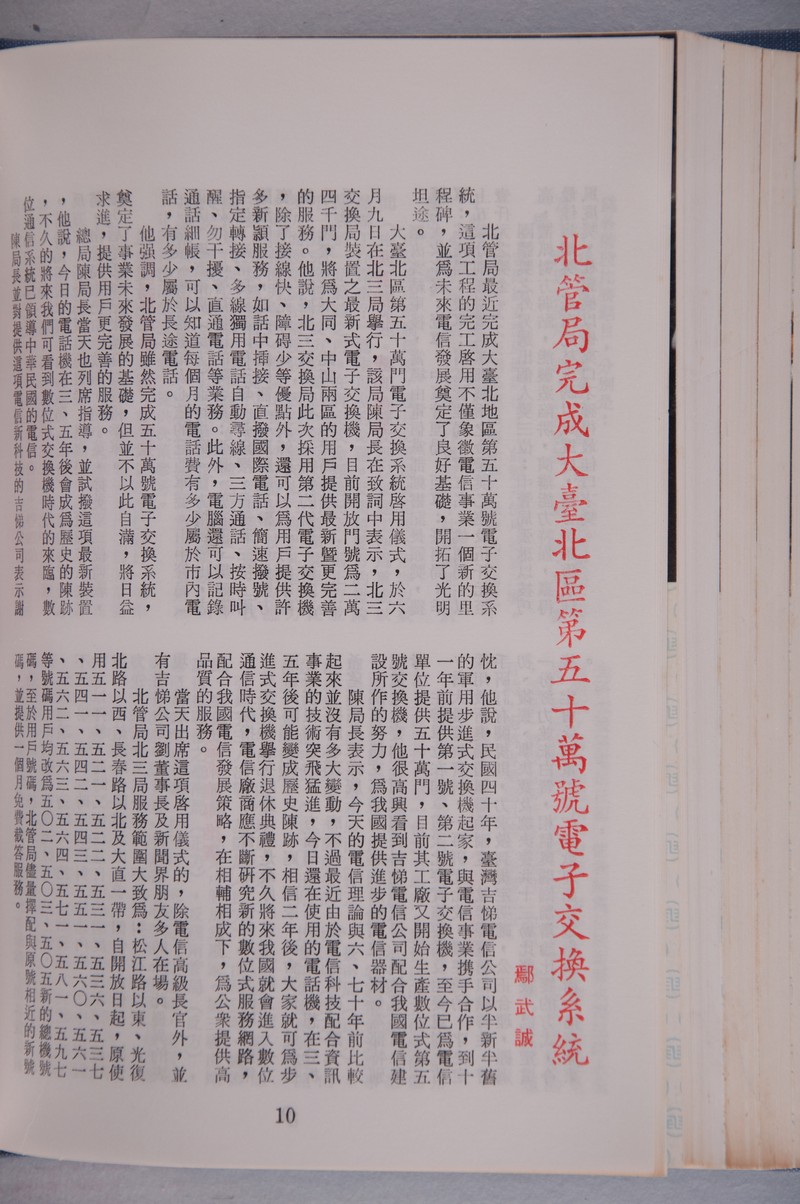 北管局完成大臺北區第五十萬號電子交換系統
鄢武誠
北管局最近完成大臺北地區第五十萬號電子交換系
統，這項工程的完工啓用不僅象徵電信事業一個新的里
程碑，並爲未來電信發展奠定了良好基礎，開拓了光明
坦途。
大臺北區第五十萬門電子交換系統啓用儀式，於六
月九日在北三局舉行，該局陳局長在致詞中表示，北三
交換局裝置之最新式電子交換機，目前開放門號爲二萬
四千門，將爲大同、中山兩區的用戶提供最新暨更完善
的服務。他說，北三交換局此次採用第二代電子交換機
，除了接線快、障碍少等優點外，還可以爲用戶提供許
多新穎服務，如話中揷接、直撥國際電話、簡速撥號、
指定轉接、多線獨用電話自動尋線、三方通話、按時叫
醒、勿干擾、直通電話等業務。此外，電腦還可以記錄
通話細帳，可以知道每個月的電話費有多少屬於市內電
話，有多少屬於長途電話。
他强調，北管局雖然完成五十萬號電子交換系統，
奠定了事業未來發展的基礎，但並不以此自滿，將日益
求進，提供用戶更完善的服務。
總局陳局長當天也列席指導，並試撥這項最新裝置
，他說，今日的電話機在三、五年後會成爲歷史的陳跡
，不久的將來我們可看到數位式交換機時代的來臨，數
位通信系統已領導中華民國的電信。
陳局長並對提供這項電信新科技的吉悌公司表示謝
忱，他說，民國四十年，臺灣吉悌電信公司以半新半舊
的軍用步進式交換機起家，與電信事業携手合作，到十
一年前提供第一號、第二號電子交換機，至今已爲電信
單位提供五十萬門，目前其工廠又開始生產數位式第五
號交換機，他很高興看到吉悌電信公司配合我國電信建
設所作的努力，爲我國提供進步的電信器材。
陳局長表示，今天的電信理論與六、七十年前比較
起來並沒有多大變動，不過最近由於電信科技配合資訊
事業的技術突飛猛進，今日還在使用的電話機，在三、
五年後可能變成歷史陳跡，相信二年後，大家就可爲步
進式交換機擧行退休典禮，不久將來我國就會進入數位
通信時代，電信廠商應不斷研究新的數位式服務網路，
配合我國電信發展策略，在相輔相成下，爲公衆提供高
品質的服務。
當天出席這項啓用儀式的，除電信高級長官外，並
有吉悌公司劉董事長及新聞界朋友多人在場。
北管局北三局服務範圍大致爲：松江路以東、光復
北路以西、長春路以北及大直一帶，自開放日起，原使
用五一一、五二一、五二二、五三一、五三六、五三七
、五四一、五四二、五四三、五五一、五六〇、五六一
、五六二、五六三、五六四、五七一、五八一、五九七
等號碼用戶均改爲五〇二、五〇三、五〇五新的總機號
碼，至於用戶號碼，北管局儘量擇配與原號相近的新號
碼，並提供一個月免費截答服務。
10